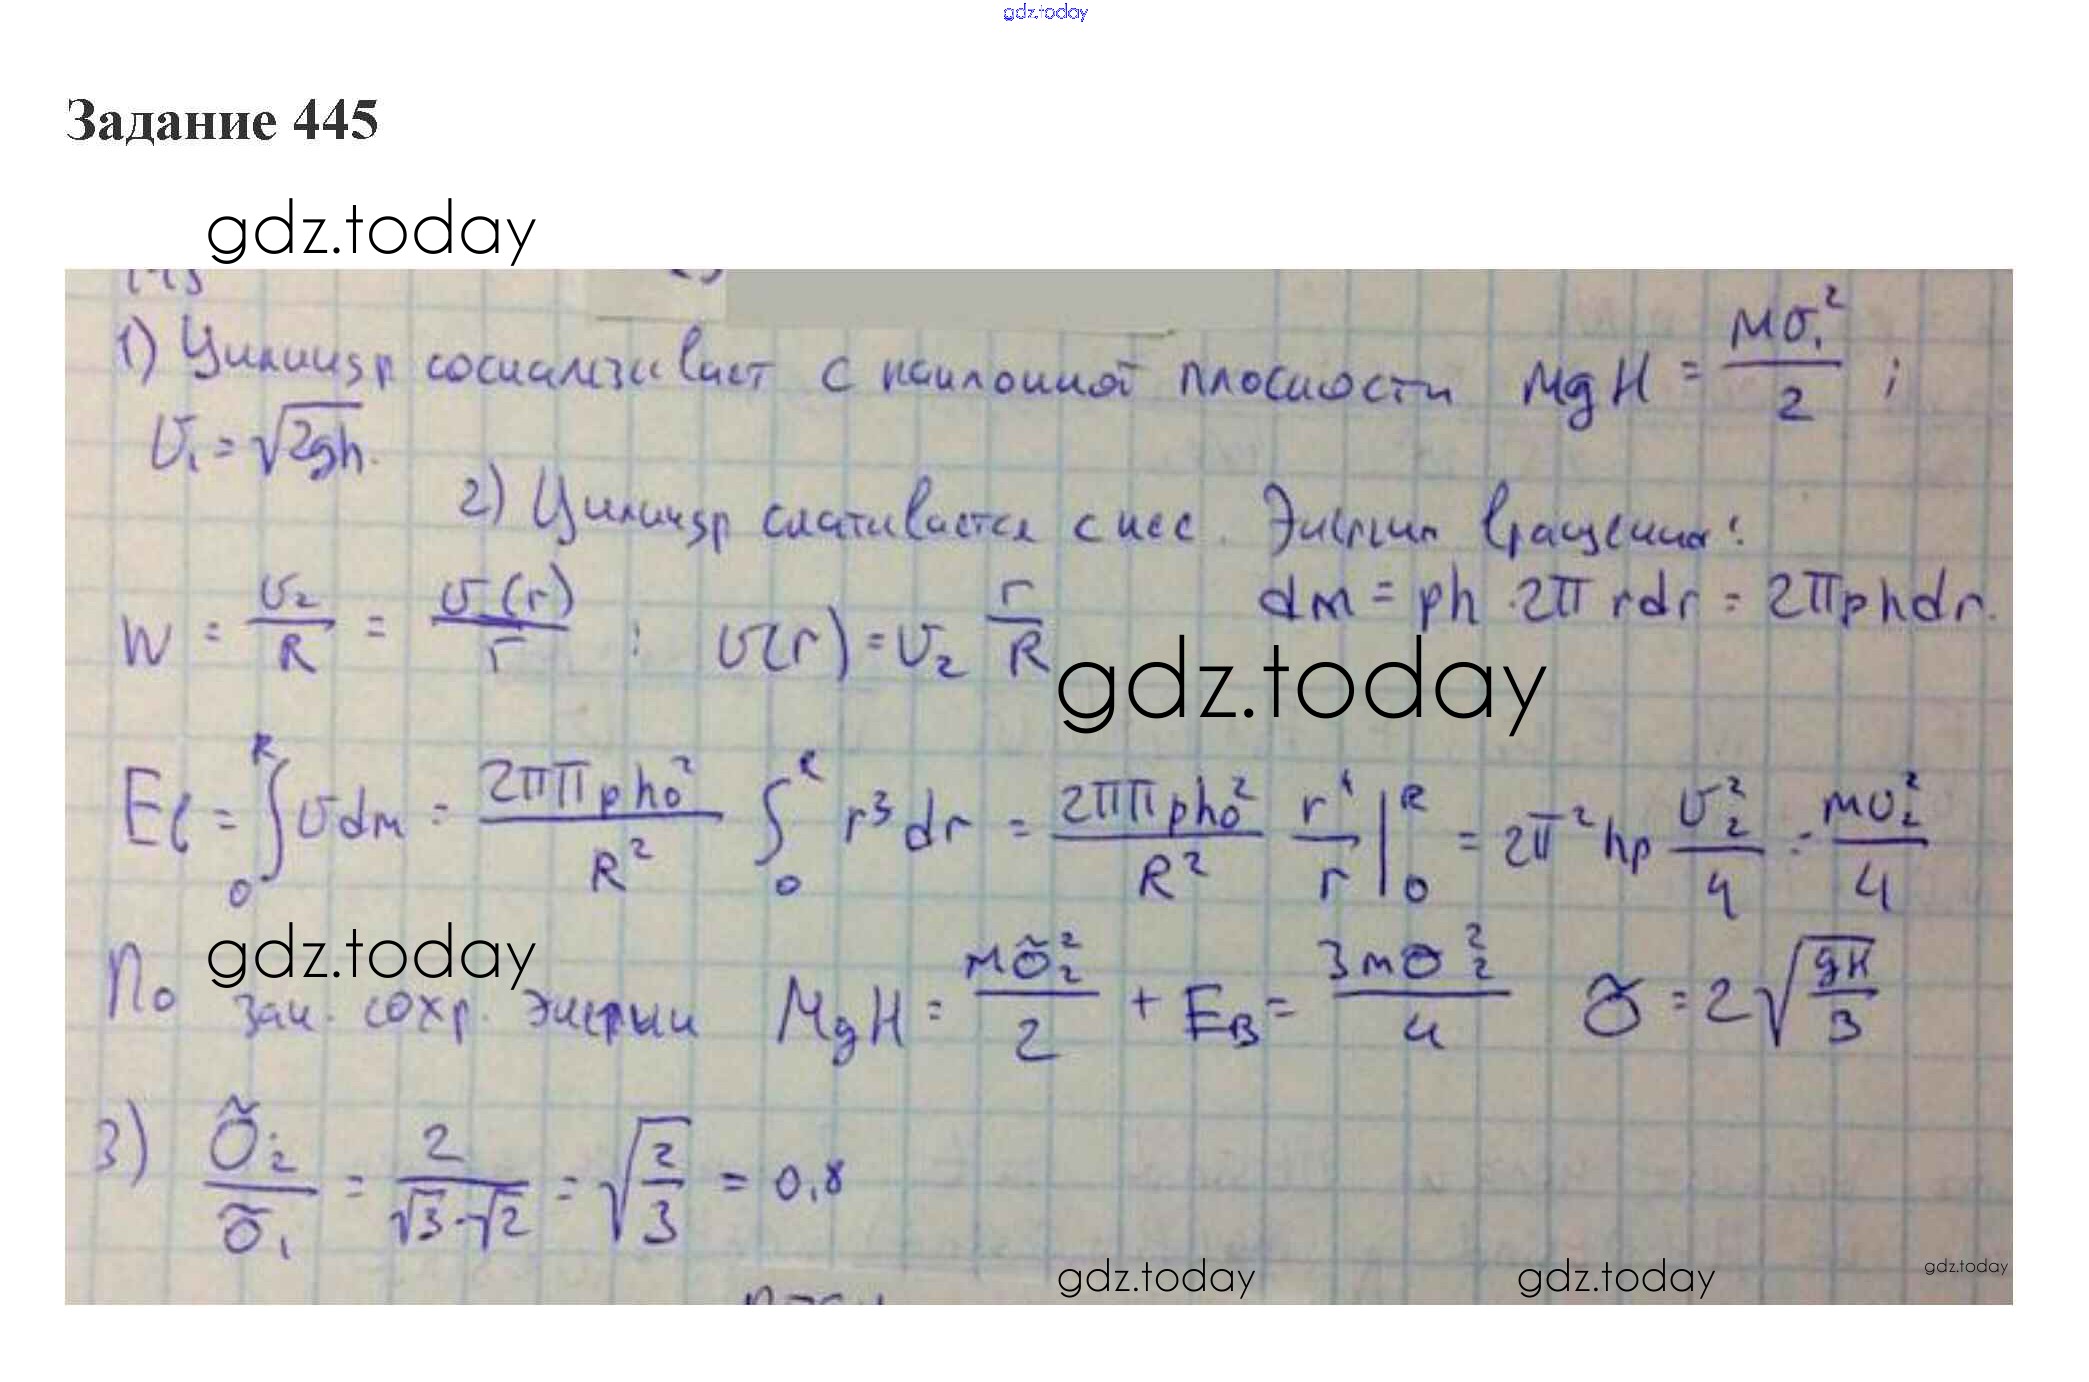 gdz.today
Задание 445
gdz.today
1) Цилиндр соскальзывает с наклонной плоскости MgH = mv₁²/2 ;
v₁ = √2gh.
2) Цилиндр скатывается с нее. Энергия вращения:
W = v₂/R = v(r)/r ; v(r) = v₂ r/R dm = ρh · 2π rdr = 2πρhdr.
gdz.today
E = ∫₀ᴿ vdm = 2ππρhv²/R² ∫₀ᴿ r³dr = 2ππρhv²/R² r⁴/r |₀ᴿ = 2π²hρ v₂²/4 = mv₂²/4
gdz.today
По зак. сохр. энергии MgH = mṽ₂²/2 + Eв = 3mv₂²/4 ṽ = 2√gH/3
3) ṽ₂/ṽ₁ = 2/√3·√2 = √2/3 = 0,8
gdz.today gdz.today gdz.today